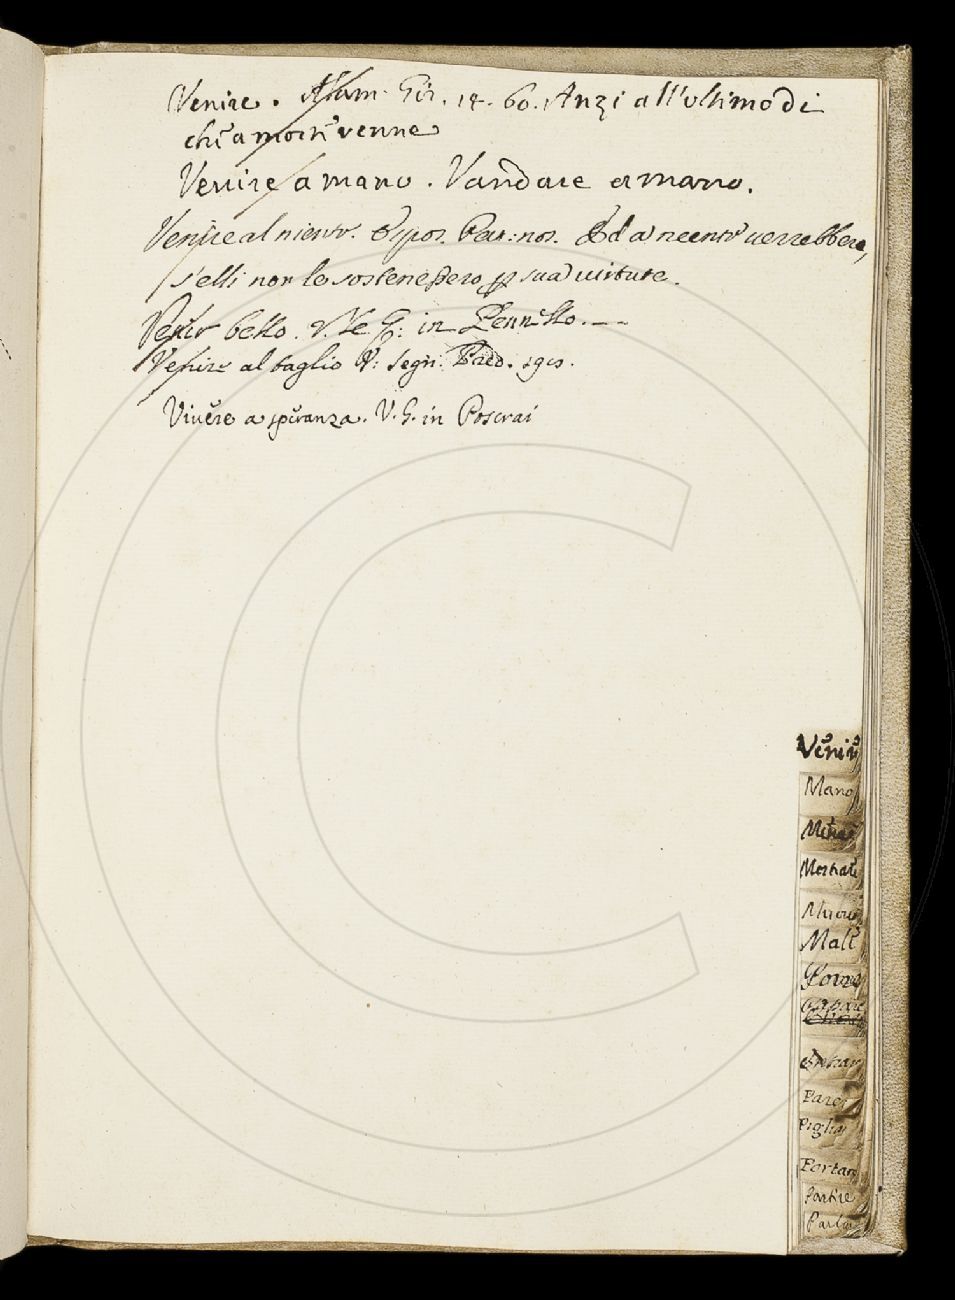 Venire. Alam. Gir. 14. 60. Anzi all'ultimo di
che a morir venne
Venire a mano. V. andare a mano.
Venire al niente. Espos. Pat: nos. Ed a neente verrebbero,
s'elli non le sostenessero p sua virtute.
Venir bello. V. Ve G: in Pennello.
Venire al taglio V: Segn. Pred.
Vivere a speranza. V. G. in
Venir
Mano
Mostrare
Male
Pare
Piglia
Portar
Partire
Parla